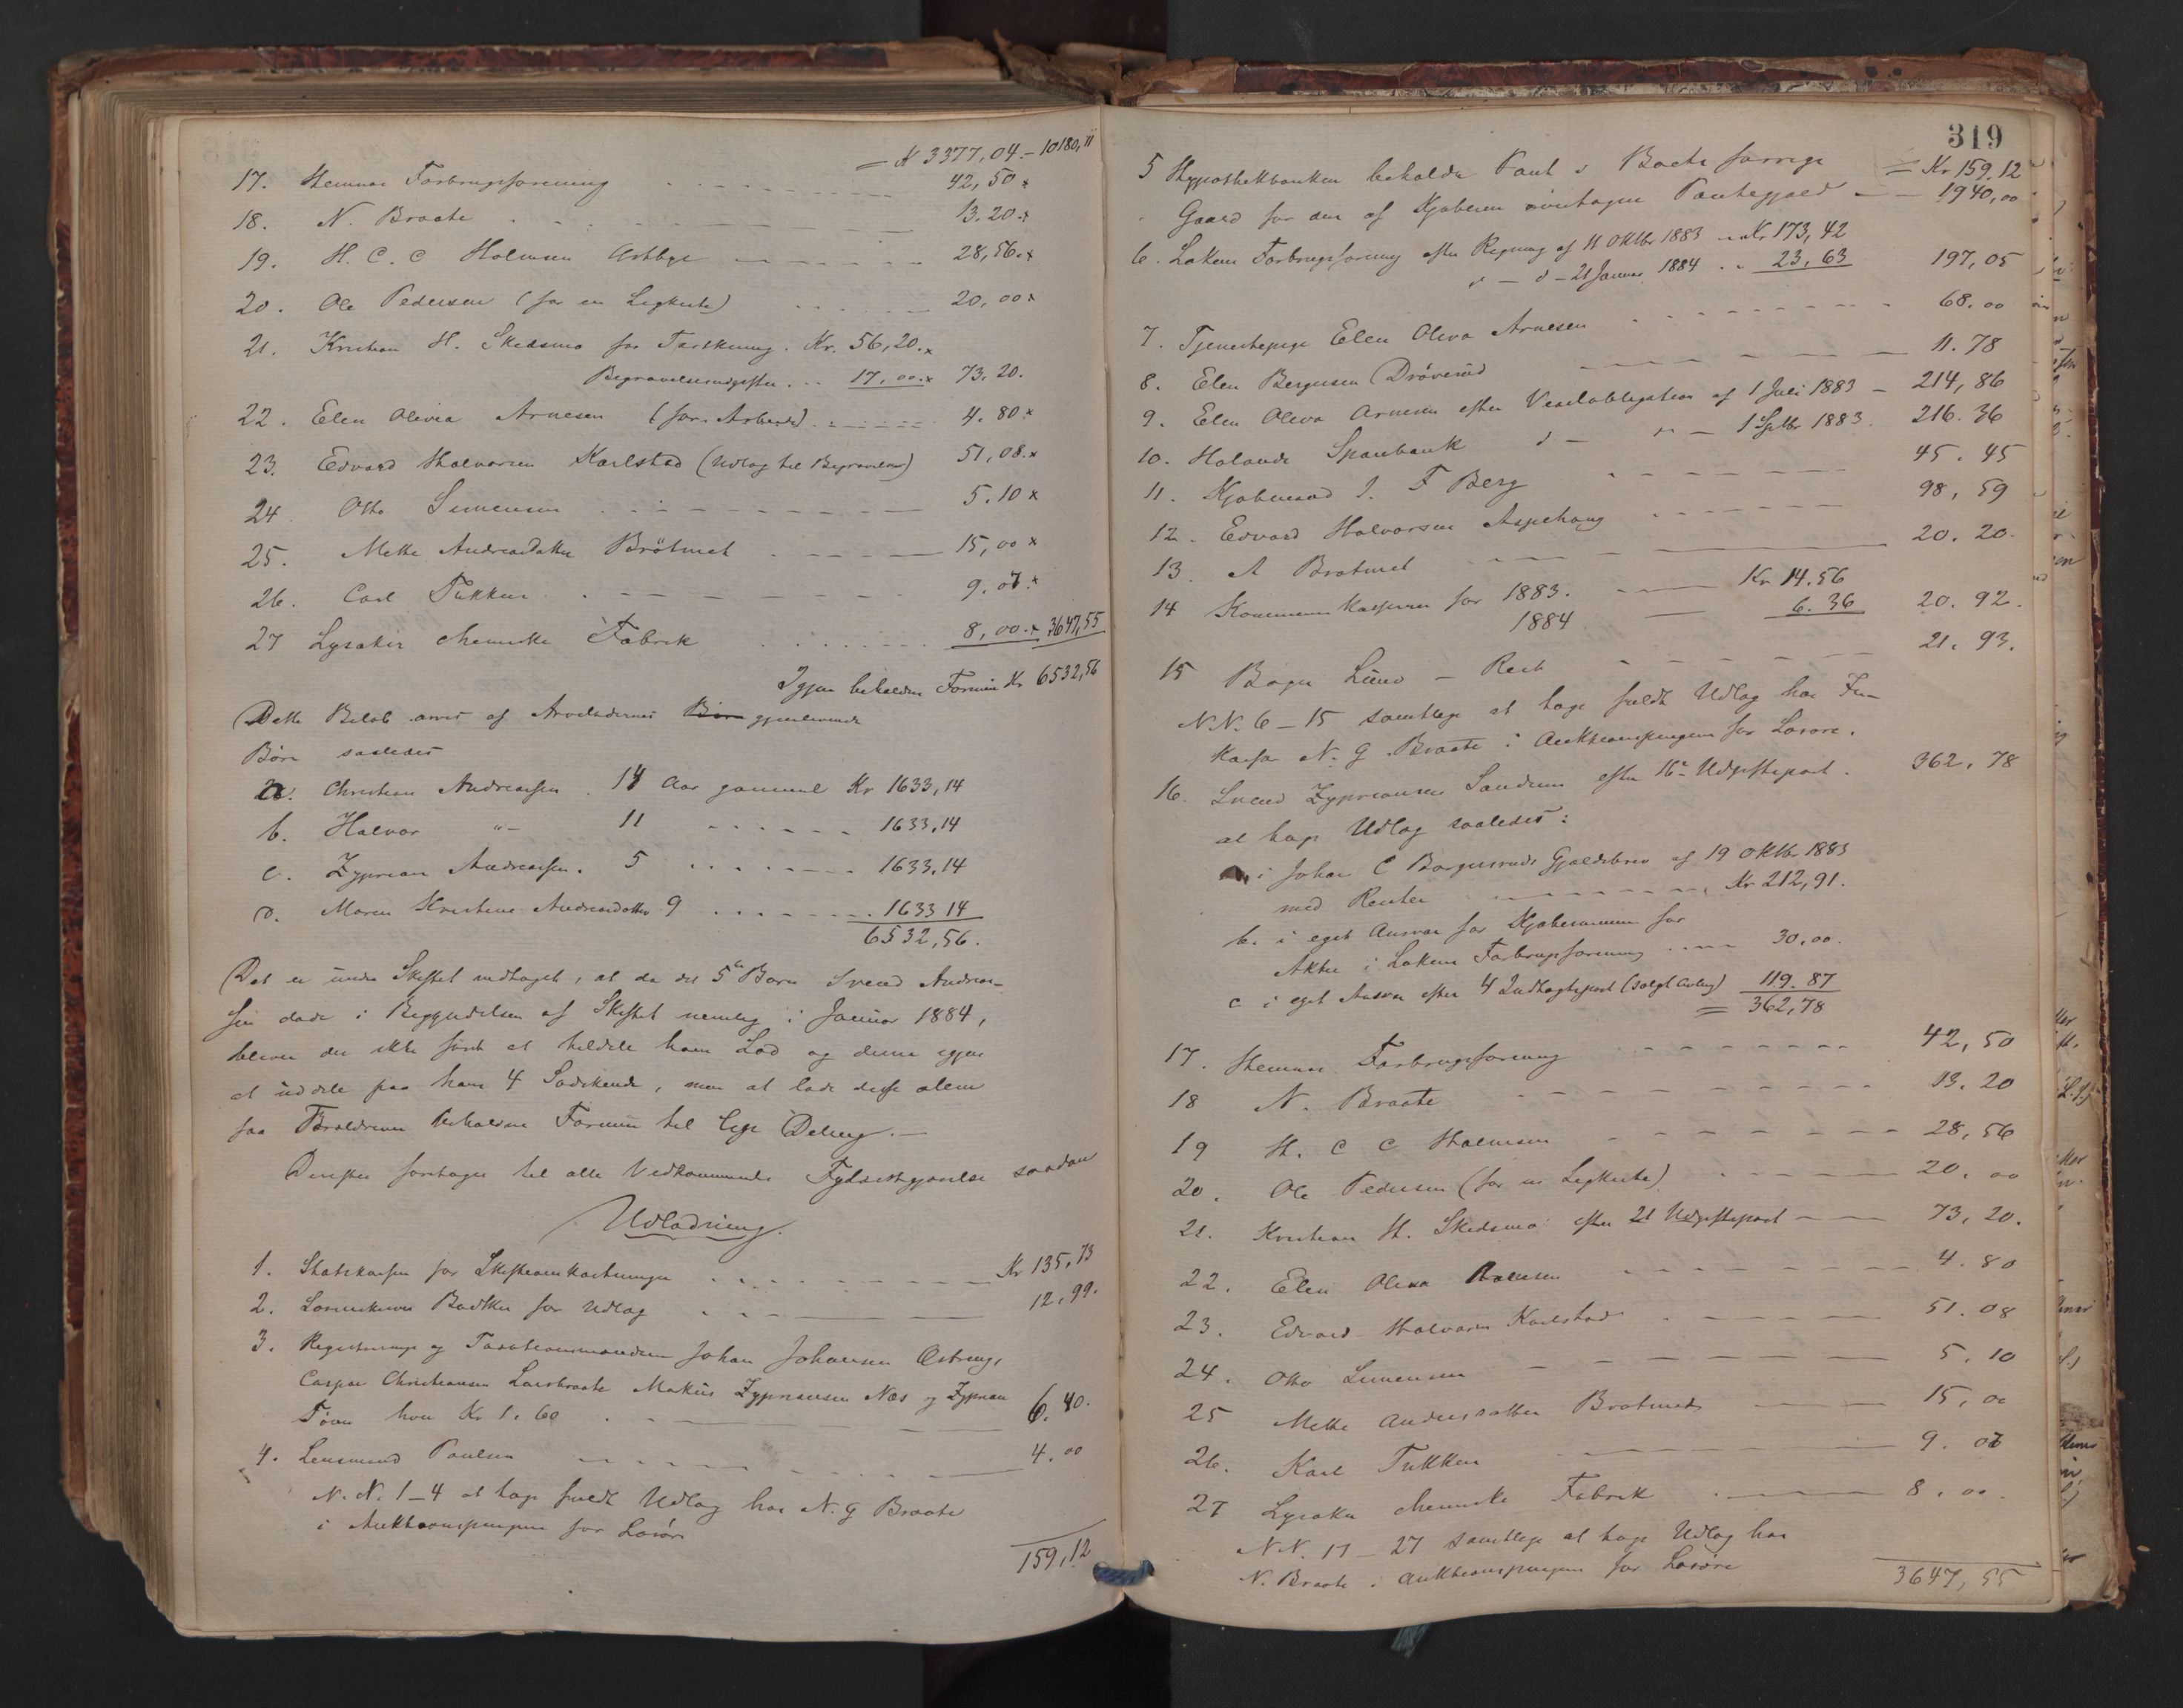 = Kr 3377,04 – 10180,11
17. Hemnæs Forbrugsforening 42,50 x
18. N. Braate 13.20 x
19. H. C. C Holmsen Astbye 28,56 x
20. Ole Pedersen (for en Ligkiste) 20,00 x
21. Kristian H. Skedsmo for Tærskning. Kr. 56,20. x
Begravelsesudgifter 17,00 x 73,20.
22. Elen Olivia Arnesen (for Arbeide) 4.80 x
23. Edvard Halvorsen Karlstad (Udlæg til Begravelsen) 51,08. x
24 Otto Simensen 5.10 x
25. Mette Andreasdatter Bråtnet 15,00 x
26. Carl Tukken 9.07 x
27 Lysaker chemiske Fabrik 8,00. x 3647,55
Igjen beholden Formue Kr 6532,56
Dette Beløb arves af Arveladernes Børn gjenlevende
Børn saaledes
a. Christian Andreassen 14 Aar gammel Kr 1633,14
b. Halvor " 11 1633,14
c. Zyprian Andreassen. 5 1633,14
d. Maren Kristine Andreasdatter 9 1633 14
6532,56.
Det er under Skiftet vedtaget, at da det 5te Barn Svend Andreas-
sen døde i Begyndelsen af Skiftet nemlig i Januar 1884,
bliver der ikke først at tildele ham Lod og denne igjen
at uddele paa hans 4 Sødskende, men at lade disse alene
faa Forældrenes beholdne Formue til lige Deling. –
Derefter foretages til alle Vedkommendes Fyldestgjørelse saadan
Udlodning.
1. Statskassen for Skifteomkostninger Kr 135,73
2. Sorenskriver Bødtker for Udlæg 12,99.
3. Registrerings og Taxationsmændene Johan Johansen Østreng,
Caspar Christiansen Laersbraate Makus Zypriansen Næs og Zyprian
Tøien hver Kr 1.60 6.40.
4. Lensmand Paulsen 4.00
N.N. 1–4 at tage fuldt Udlæg hos N. G Braate
i Auktionspengene for Løsøre
159,12
319
= Kr 159.12
5 Hypothekbanken beholder Pant i Boets forrige
Gaard for den af Kjøberen overtagne Pantegjæld 1940,00
6. Løkens Forbrugsforening efter Regning af 11 Oktbr 1883 Kr 173,42
" – d – 21 Januar 1884 23,63 197,05
7. Tjenestepige Elen Oliva Arnesen 68.00
8. Elen Bergersen Drøverud 11.78
9. Elen Oliva Arnesen efter Vexelobligation af 1 Juli 1883 – 214,86
10. Hølands Sparebank d – " – 1 Septbr 1883. 216.36
11. Kjøbmand J. F Berg 45.45
12. Edvard Halvorsen Aspehaug 98,59
13. A Bråtnet 20.20.
14 Kommunekassen for 1883. Kr 14.56
1884 6.36 20.92.
15 Roger Lund – Rest 21.93.
N.N. 6–15 samtlige at tage fuldt Udlæg hos In-
kassor N. G. Braate i Auktionspengene for Løsøre.
16. Svend Zypriansen Sandum efter 16de Udgiftspost. 362,78
at tage Udlæg saaledes:
a. i Johan C Borgersruds Gjældsbrev af 19 Oktbr 1883
med Renter Kr 212,91.
b. i eget Ansvar for Kjøbesummen for
Aktie i Løkens Forbrugsforening 30,00.
c i eget Ansvar efter 4 Indtægtspost (solgt Avling) 119.87
= 362,78
17. Hemnæs Forbrugsforening 42,50
18 N. Braate 13.20
19 H. C C Holmsen 28,56
20. Ole Pedersen (for en Ligkiste) 20.00
21. Kristian H. Skedsmo efter 21 Udgiftspost 73,20.
22. Elen Oliva Arnesen 4.80
23. Edvard Halvorsen Karlstad 51.08
24. Otto Simensen 5,10
25 Mette Andreasdatter Bråtnet 15,00
26. Karl Tukken 9.07
27 Lysaker chemiske Fabrik 8.00
N.N. 17–27 samtlige at tage Udlæg hos
N. Braate i Auktionspengene for Løsøre
3647,55